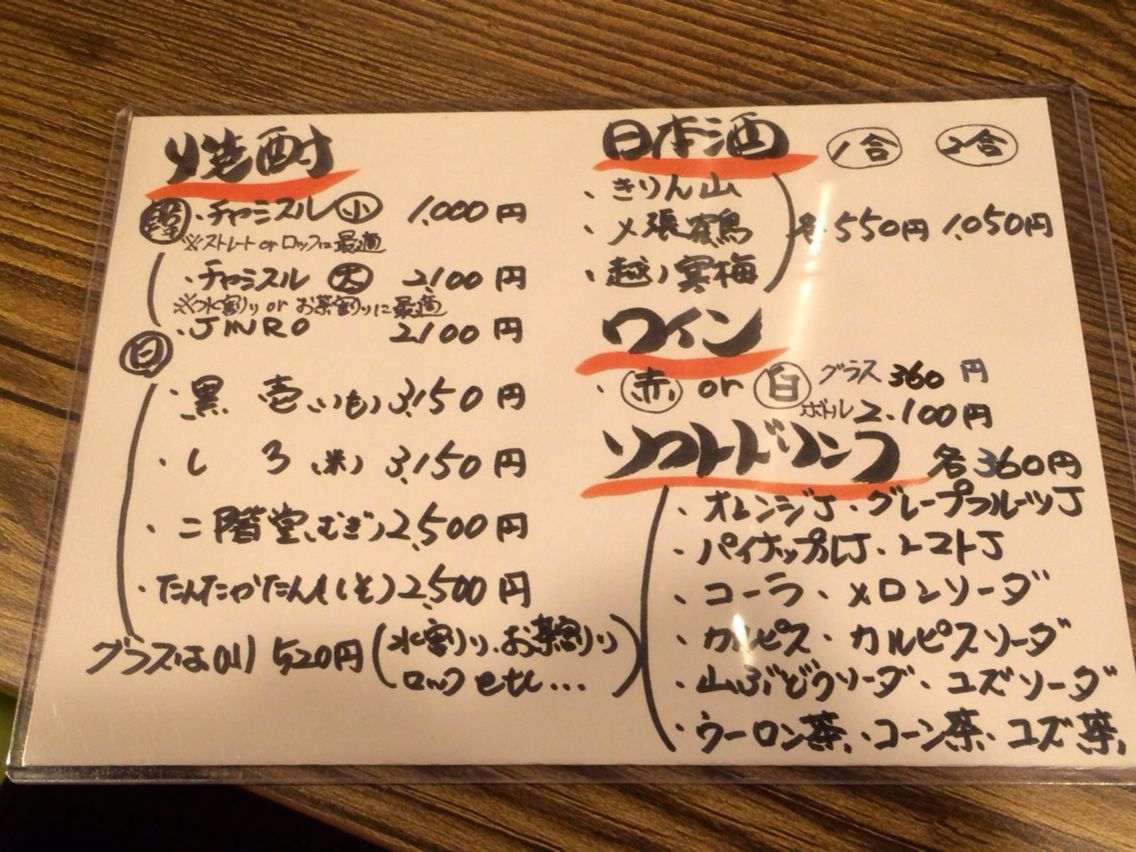 焼酎
韓 ・チャミスル 小 1,000円
※ストレート or ロックに最適
・チャミスル 大 2,100円
※水割り or お茶割りに最適
・JINRO 2,100円
日
・黒 壱（いも）3,150円
・し ろ（米）3,150円
・二階堂（むぎ）2,500円
・たんたかたん（しそ）2,500円
グラス売り 520円（水割り、お茶割り
ロック etc...）
日本酒 1合 2合
・きりん山
・〆張鶴 各550円 1,050円
・越ノ寒梅
ワイン
・赤 or 白 グラス 360円
ボトル 2,100円
ソフトドリンク 各360円
・オレンジJ・グレープフルーツJ
・パイナップルJ・トマトJ
・コーラ・メロンソーダ
・カルピス・カルピスソーダ
・山ぶどうソーダ・ユズソーダ
・ウーロン茶、・コーン茶・ユズ茶、